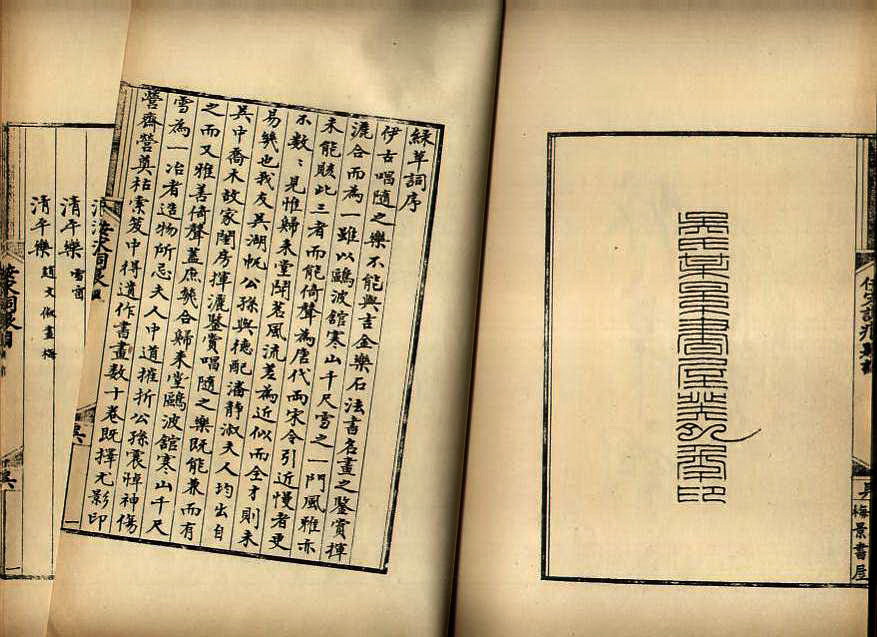 吳氏某景書屋
佞宋詞痕
吳
梅景書屋
綠草詞序
伊古唱隨之樂不能與吉金樂石法書名畫之鑒賞揮
灑合而為一雖以鷗波館寒山千尺雪之一門風雅亦
未能賅此三者而能倚聲為唐代兩宋令引近慢者更
不數〻見惟歸来堂鬭茗風流差為近似而全才則未
易幾也我友吳湖帆公孫與德配潘静淑夫人均出自
吳中喬木故家閨房揮灑鑒賞唱隨之樂既能兼而有
之而又雅善倚聲蓋庶幾合歸来堂鷗波館寒山千尺
雪為一冶者造物所忌夫人中道摧折公孫震悼神傷
營齋營奠枯索笈中得遺作書畫數十卷既擇尤影印
一
清平樂 雪窗
清平樂 趙文俶畫梅
吳
一